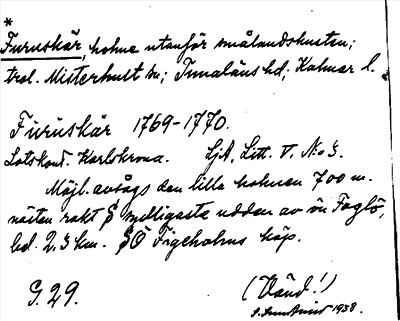 *
Furuskär, holme utanför smålandskusten;
trol. Misterhult sn; Tunaläns hd; Kalmar l.
Furuskär 1769-1770.
Lotskont. Karlskrona. SjA, Litt. V. No 3.
Möjl. avsågs den lilla holmen 700 m.
nästan rakt S sydligaste udden av ön Fogö,
bel. 2.3 km. SÖ Figeholms köp.
G. 29. (Vänd!)
1938.